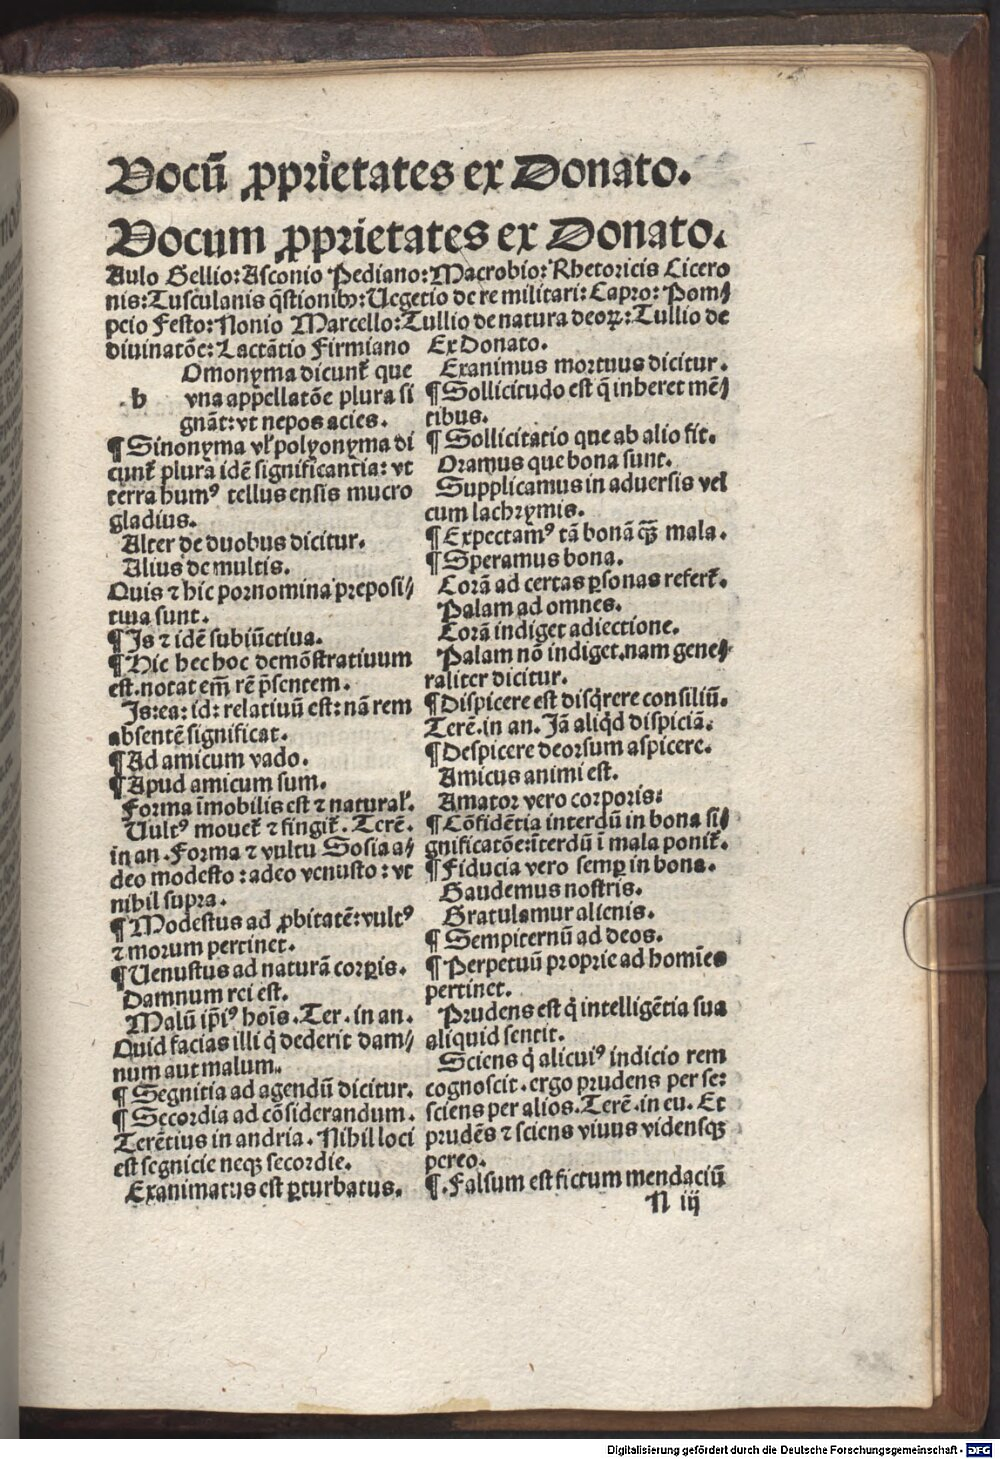 Vocū ꝓprietates ex Donato.
Vocum ꝓprietates ex Donato.
Aulo Gellio: Asconio Pediano: Macrobio: Rhetoricis Cicero
nis: Tusculanis q̄stionibꝰ: Uegetio de re militari: Capro: Pom⸗
peio Festo: Nonio Marcello: Tullio de natura deoꝝ: Tullio de
diuinatōe: Lactātio Firmiano
Omonyma dicunt̄ que
.h vna appellatōe plura si
gnāt: vt nepos acies.
¶ Sinonyma vl̓ polyonyma di
cunt̄ plura idē significantia: vt
terra humꝰ tellus ensis mucro
gladius.
Alter de duobus dicitur.
Alius de multis.
Quis ⁊ hic pornomina preposi⸗
tiua sunt.
¶ Is ⁊ idē subiūctiua.
¶ Hic hec hoc demōstratiuum
est. notat em̄ rē p̄sentem.
Is: ea: id: relatiuū est: nā rem
absentē significat.
¶ Ad amicum vado.
¶ Apud amicum sum.
Forma īmobilis est ⁊ natural̓.
Uultꝰ mouet̄ ⁊ fingit̄. Terē.
in an. Forma ⁊ vultu Sosia a⸗
deo modesto: adeo venusto: vt
nihil supra.
¶ Modestus ad ꝓbitatē: vultꝰ
⁊ morum pertinet.
¶ Uenustus ad naturā corꝑis.
Damnum rei est.
Malū ip̄iꝰ hoīs. Ter. in an.
Quid facias illi q̇ dederit dam⸗
num aut malum.
¶ Segnitia ad agendū dicitur.
¶ Secordia ad cōsiderandum.
Terētius in andria. Nihil loci
est segnicie neqꝫ secordie.
Exanimatus est ꝑturbatus.
Ex Donato.
Exanimus mortuus dicitur.
¶ Sollicitudo est q̄ inheret mē⸗
tibus.
¶ Sollicitatio que ab alio fit.
Oramus que bona sunt.
Supplicamus in aduersis vel
cum lachrymis.
¶ Expectamꝰ tā bonā qꝫ̄ mala.
¶ Speramus bona.
Corā ad certas ꝑsonas refert̄.
Palam ad omnes.
Corā indiget adiectione.
Palam nō indiget. nam gene⸗
raliter dicitur.
¶ Dispicere est disq̇rere consiliū.
Terē. in an. Jā aliq̇d dispiciā.
¶ Despicere deorsum aspicere.
Amicus animi est.
Amator vero corporis:
¶ Cōfidētia interdū in bona si⸗
gnificatōe: īterdū ī mala ponit̄.
¶ Fiducia vero semꝑ in bona.
Gaudemus nostris.
Gratulamur alienis.
¶ Sempiternū ad deos.
¶ Perpetuū proprie ad homīes
pertinet.
Prudens est q̇ intelligētia sua
aliquid sentit.
Sciens q̇ alicuiꝰ indicio rem
cognoscit. ergo prudens per se:
sciens per alios. Terē. in eu. Et
prudēs ⁊ sciens viuus vidensqꝫ
pereo.
¶. Falsum est fictum mendaciū
N iij
Digitalisierung gefördert durch die Deutsche Forschungsgemeinschaft - DFG